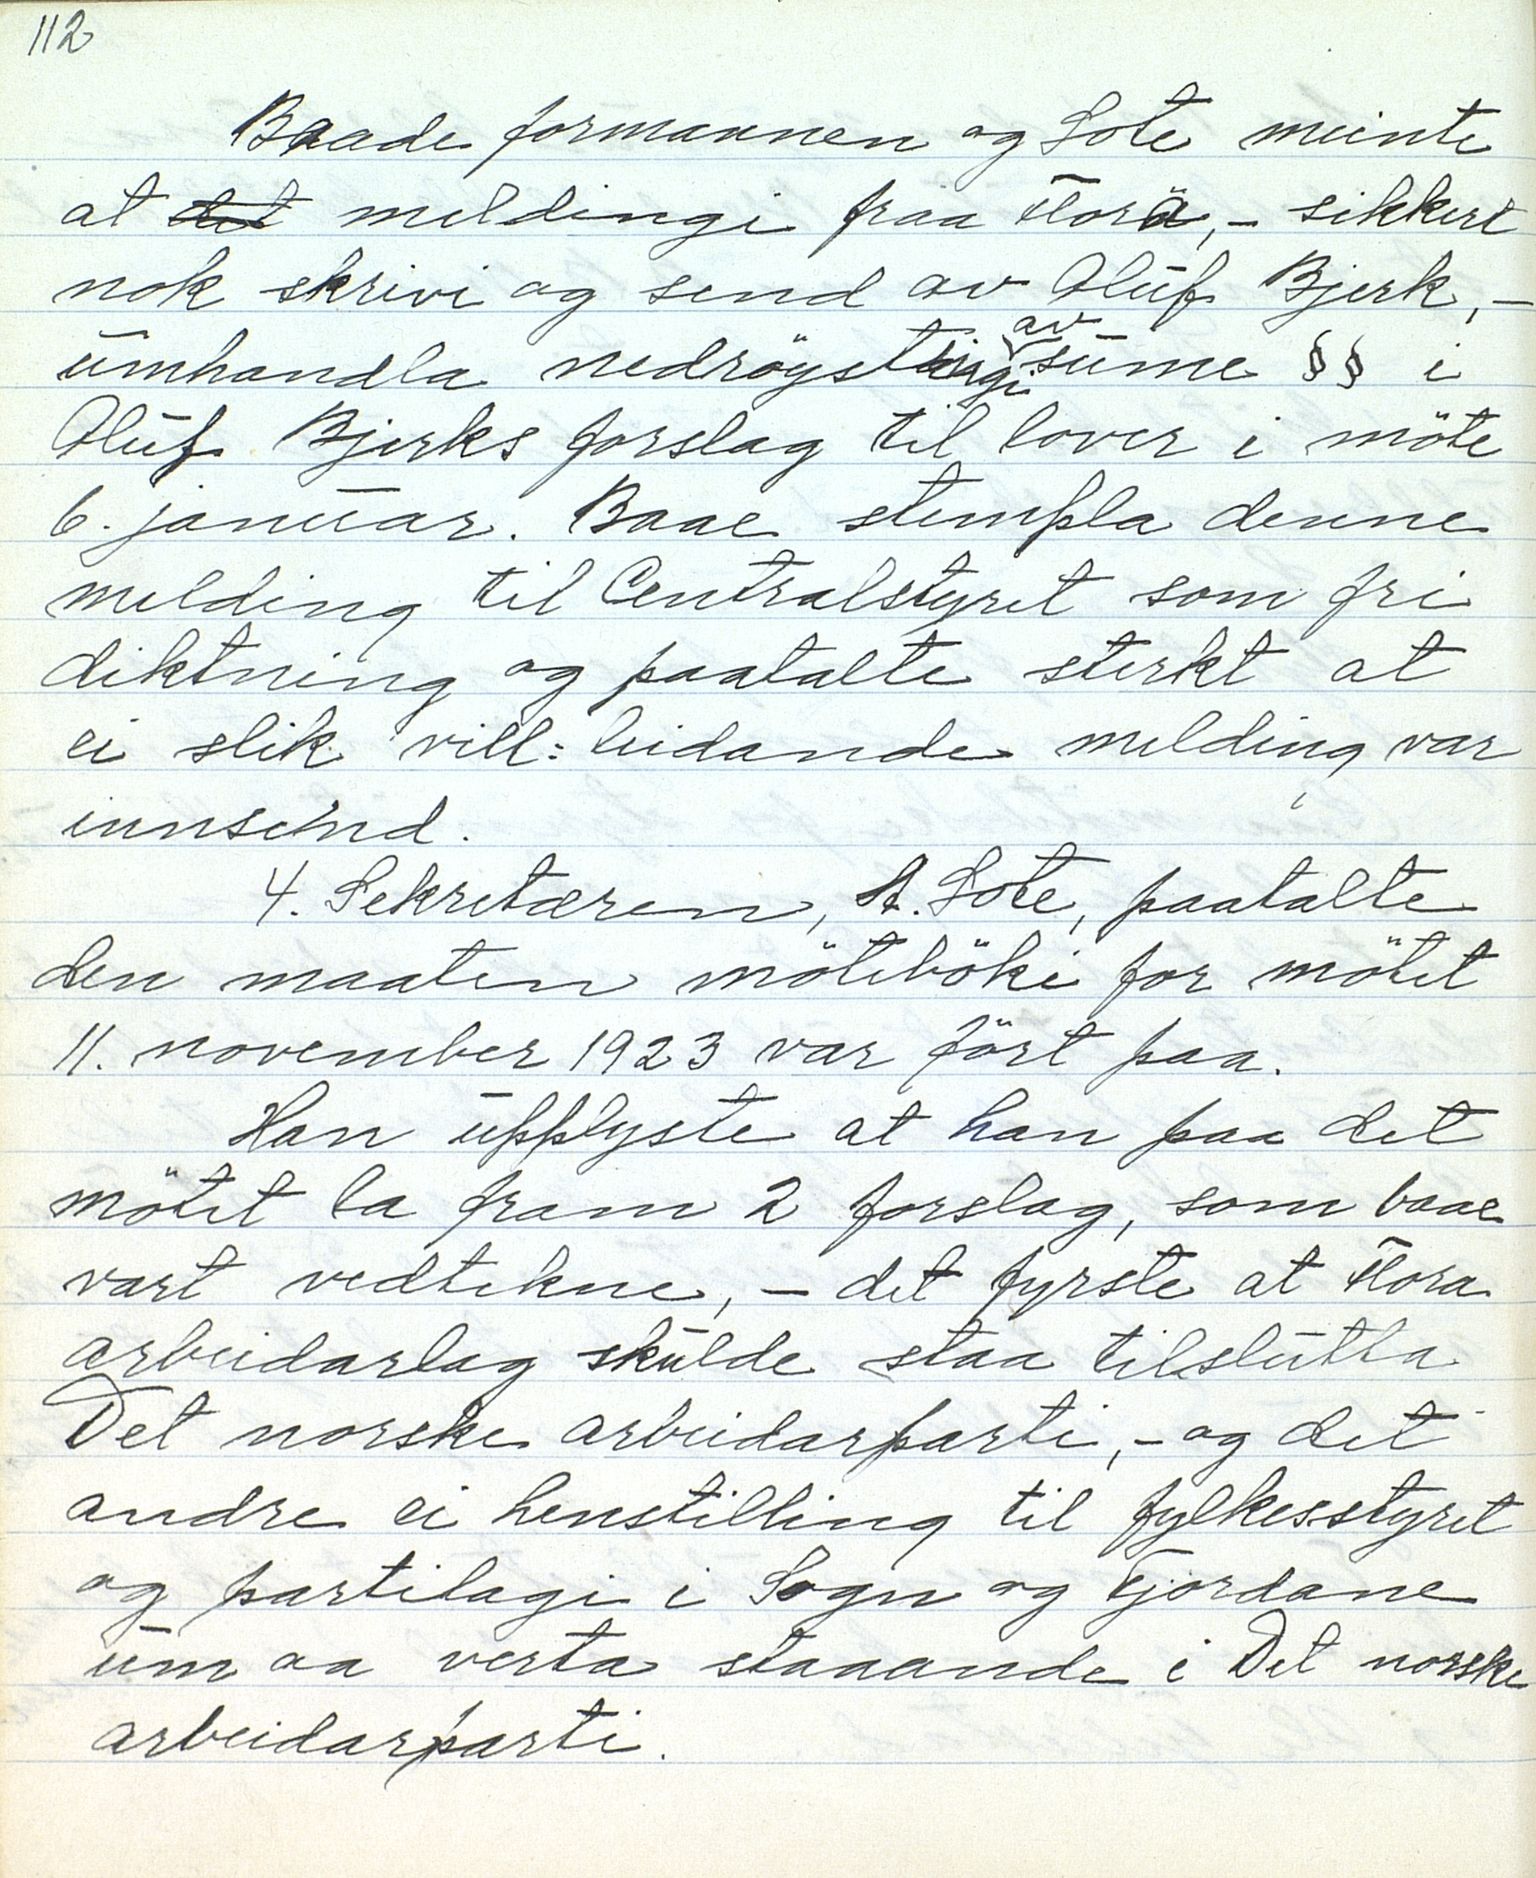 112
Baade formannen og Sote meinte
at det meldingi fraa Flora, - sikkert
nok skrivi og send av Oluf Bjerk, -
umhandla nedröystingi av sume §§ i
Oluf Bjerks forslag til lover i möte
6. januar. Baae stempla denne
melding til Centralstyret som fri
diktning og paatalte sterkt at
ei slik vill-leidande melding var
innsend.
4. Sekretæren, A. Sote, paatalte
den maaten möteböki for mötet
11. november 1923 var fört paa.
Han upplyste at han paa det
mötet la fram 2 forslag, som baae
vart vedtekne, - det fyrste at Flora
arbeidarlag skulde staa tilslutta
Det norske arbeidarparti, - og det
andre ei henstilling til fylkesstyret
og partilagi i Sogn og Fjordane
um aa verta staaande i Det norske
arbeidarparti.